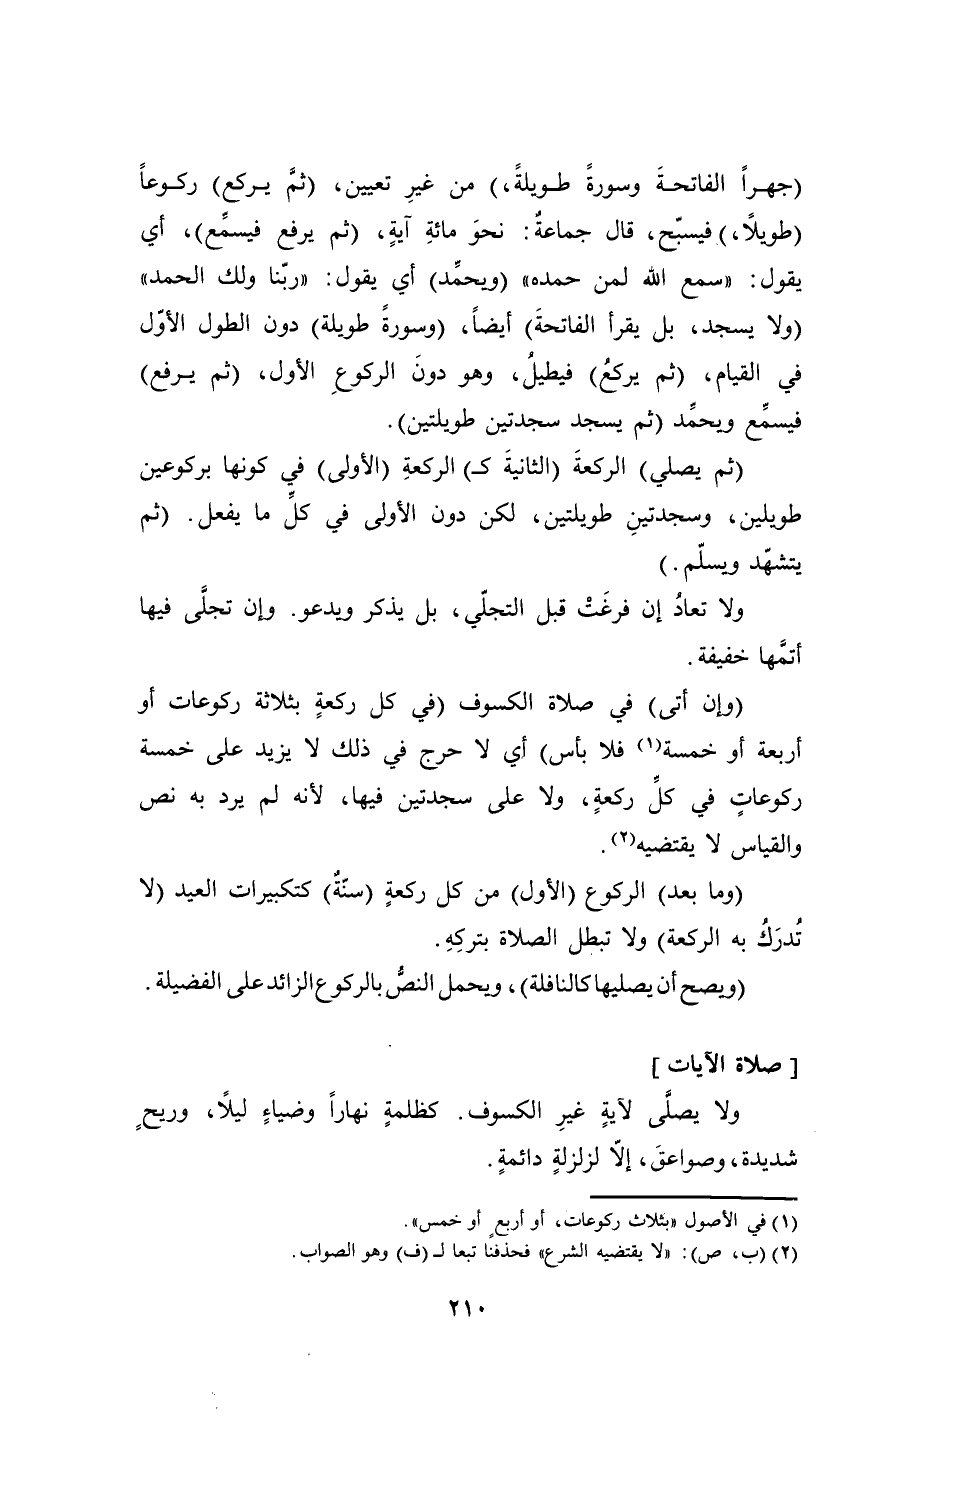 (جهـراً الفاتحـةَ وسورةً طـويلةً،) من غيرِ تعيين، (ثمَّ يـركع) ركـوعاً
(طويلًا،) فيسبّح، قال جماعةٌ: نحوَ مائةِ آيةٍ، (ثم يرفع فيسمِّع)، أي
يقول: «سمع الله لمن حمده» (ويحمِّد) أي يقول: «ربّنا ولك الحمد»
(ولا يسجد، بل يقرأ الفاتحةَ) أيضاً، (وسورةً طويلة) دون الطول الأوّل
في القيام، (ثم يركعُ) فيطيلُ، وهو دونَ الركوعِ الأول، (ثم يـرفع)
فيسمِّع ويحمِّد (ثم يسجد سجدتين طويلتين).
(ثم يصلي) الركعةَ (الثانيةَ كـ) الركعةِ (الأولى) في كونها بركوعين
طويلين، وسجدتينِ طويلتين، لكن دون الأولى في كلِّ ما يفعل. (ثم
يتشهّد ويسلّم.)
ولا تعادُ إن فرغَتْ قبل التجلّي، بل يذكر ويدعو. وإن تجلَّى فيها
أتمَّها خفيفة.
(وإن أتى) في صلاة الكسوف (في كل ركعةٍ بثلاثة ركوعات أو
أربعة أو خمسة(١) فلا بأس) أي لا حرج في ذلك لا يزيد على خمسة
ركوعاتٍ في كلِّ ركعةٍ، ولا على سجدتين فيها، لأنه لم يرد به نص
والقياس لا يقتضيه(٢).
(وما بعد) الركوع (الأول) من كل ركعةٍ (سنّةٌ) كتكبيرات العيد (لا
تُدرَكُ به الركعة) ولا تبطل الصلاة بتركِهِ.
(ويصح أن يصليها كالنافلة)، ويحمل النصُّ بالركوع الزائد على الفضيلة.
[ صلاة الآيات ]
ولا يصلَّى لآيةٍ غيرِ الكسوف. كظلمةٍ نهاراً وضياءٍ ليلًا، وريحٍ
شديدة، وصواعقَ، إلّا لزلزلةٍ دائمةٍ.
(١) في الأصول «بثلاث ركوعات، أو أربعٍ أو خمس».
(٢) (ب، ص): «لا يقتضيه الشرع» فحذفنا تبعا لـ (ف) وهو الصواب.
٢١٠